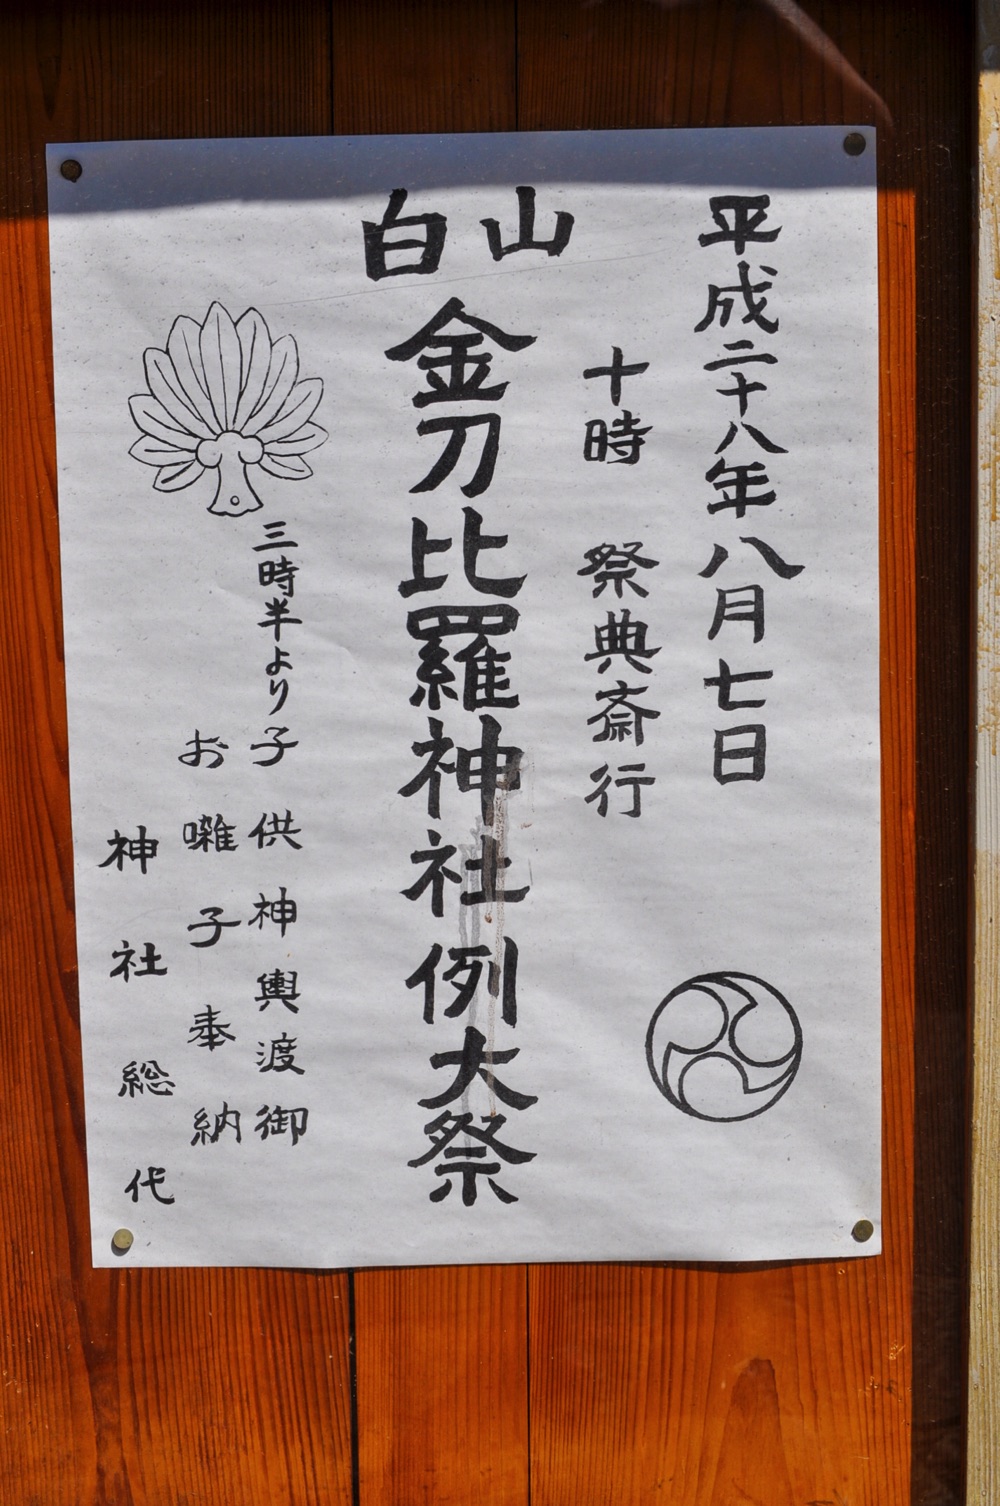 平成二十八年八月七日
十時　祭典斎行
白山
金刀比羅神社例大祭
三時半より子供神輿渡御
お囃子奉納
神社総代